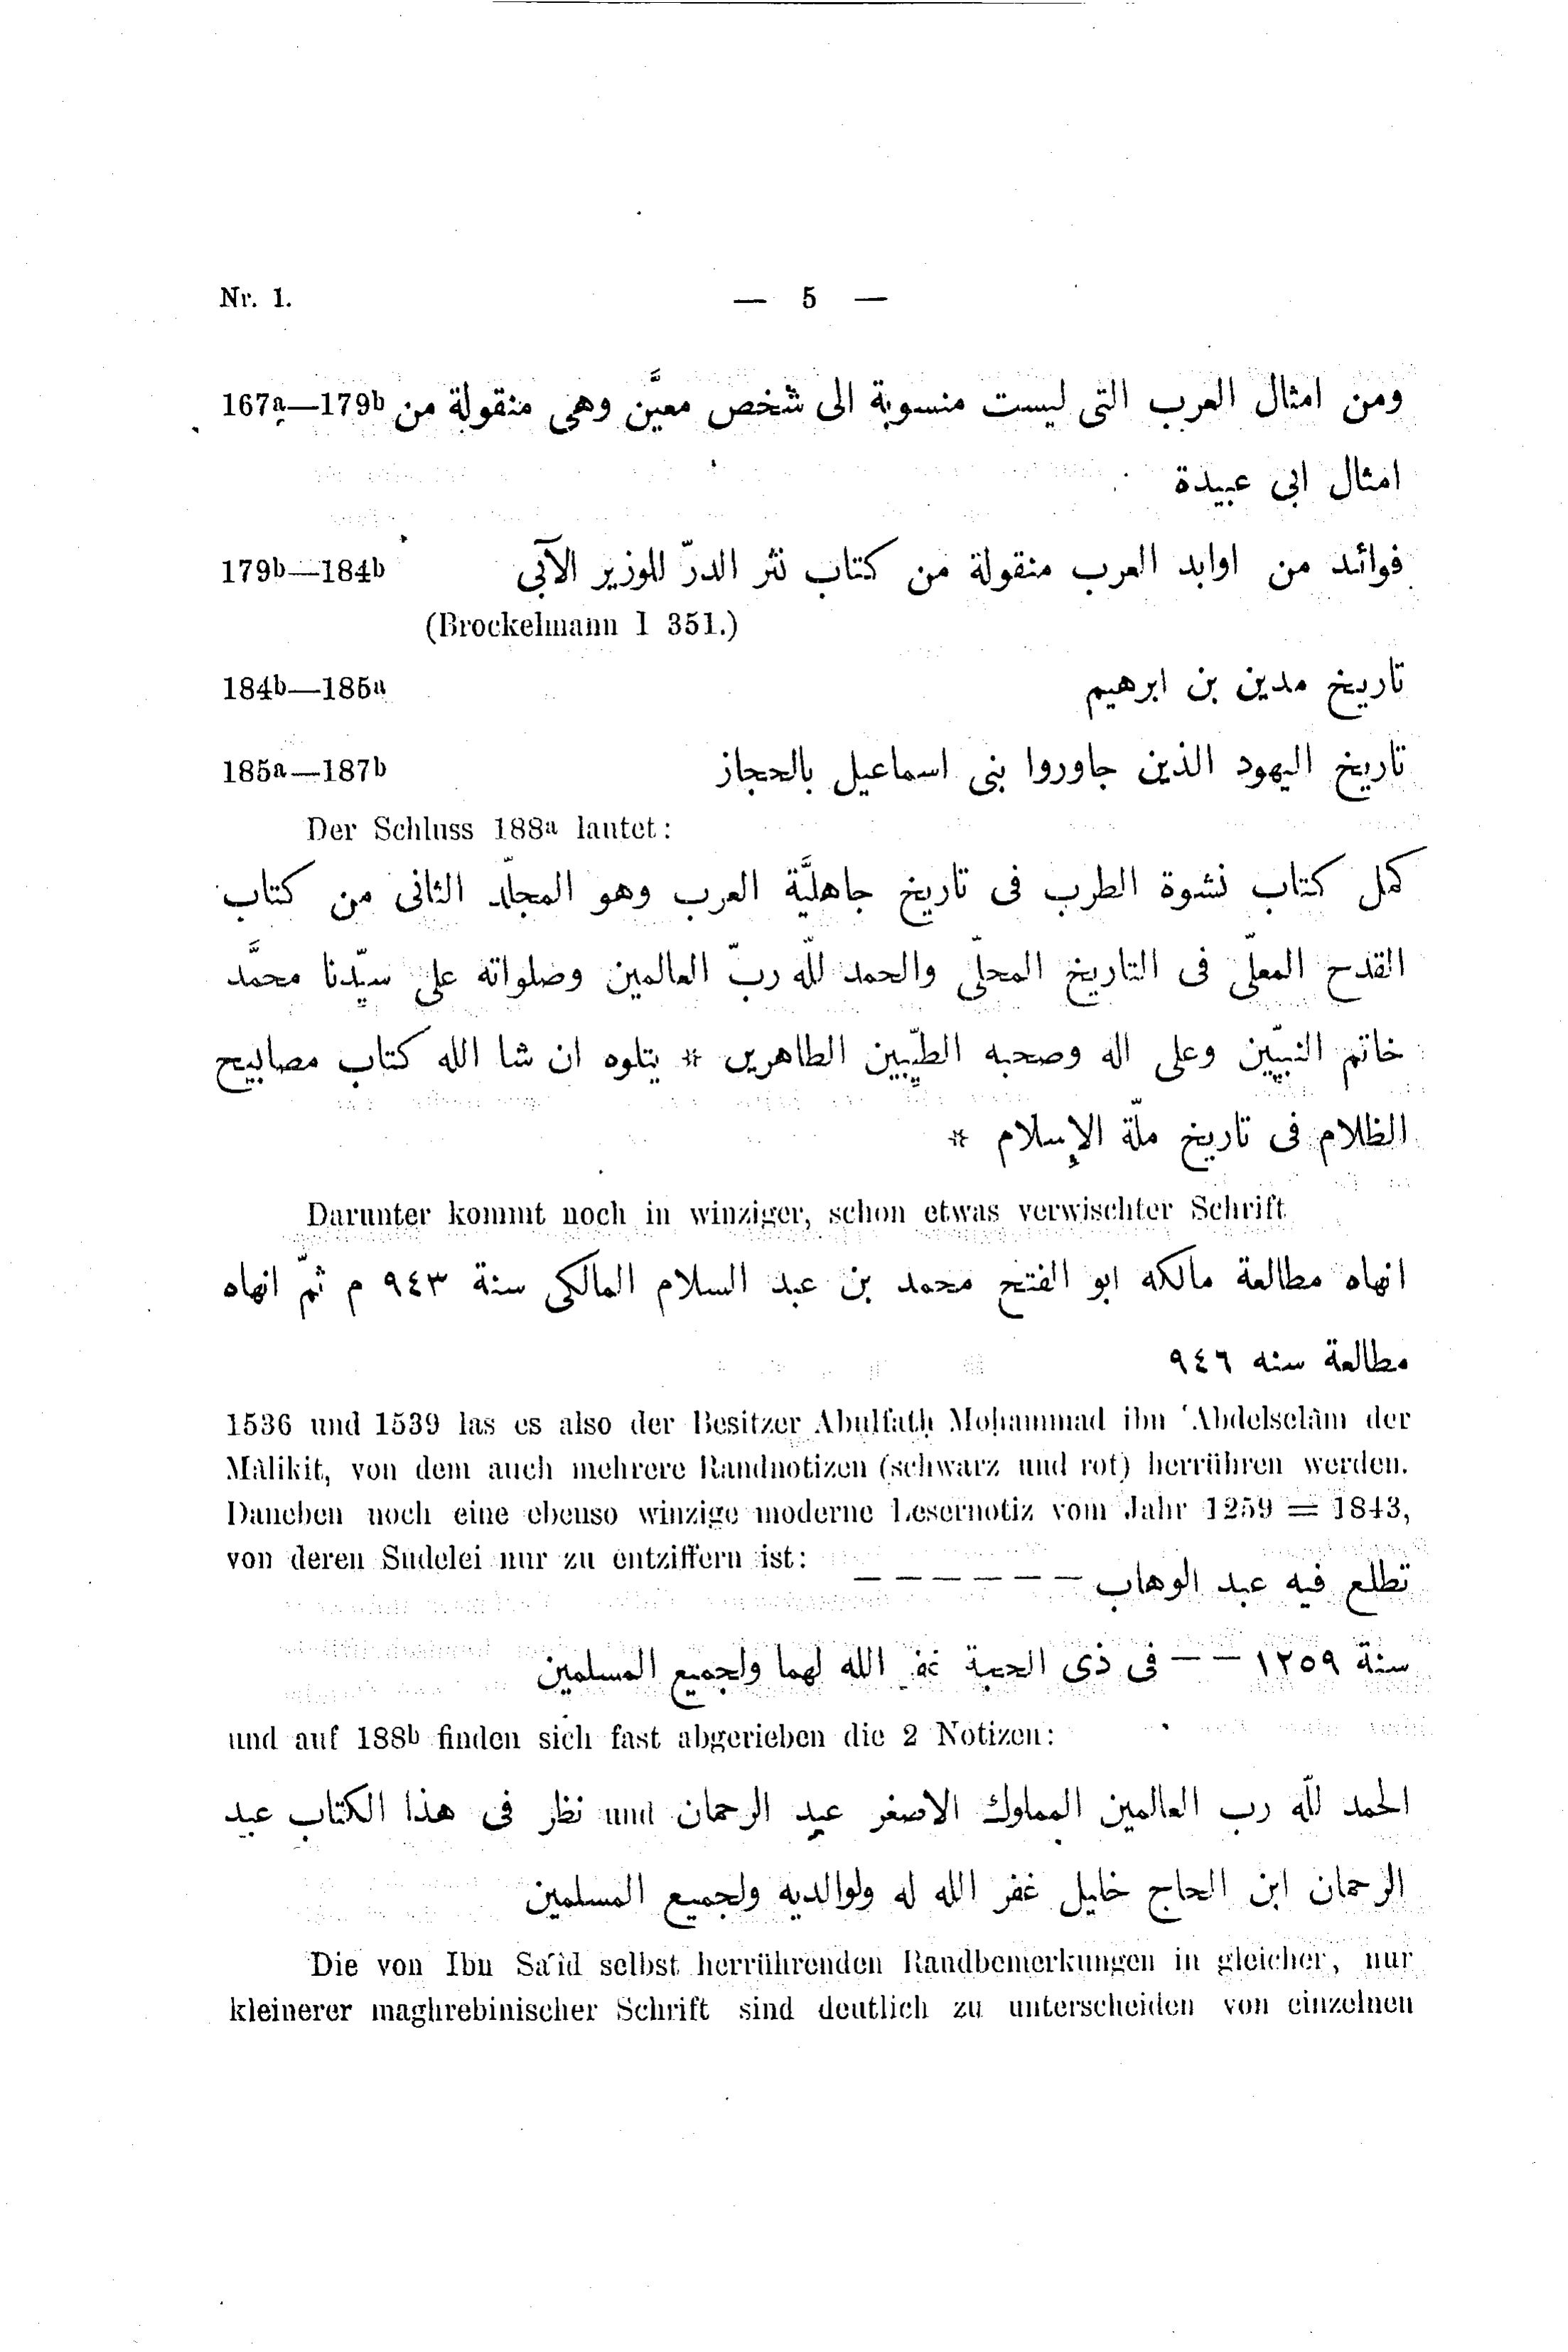 Nr. 1. — 5 —
ومن امثال العرب التى ليست منسوبة الى شخص معيَّن وهى منقولة من 167a—179b
امثال ابى عبيدة
فوائد من اوابد العرب منقولة من كتاب نثر الدرّ للوزير الآبى 179b—184b
(Brockelmann I 351.)
تاريخ مدين بن ابرهيم 184b—185a
تاريخ اليهود الذين جاوروا بنى اسماعيل بالحجاز 185a—187b
Der Schluss 188a lautet:
كمل كتاب نشوة الطرب فى تاريخ جاهليَّة العرب وهو المجلّد الثانى من كتاب
القدح المعلّى فى التاريخ المحلّى والحمد للّه ربّ العالمين وصلواته على سيّدنا محمَّد
خاتم النبيّين وعلى اله وصحبه الطيّبين الطاهرين * يتلوه ان شا الله كتاب مصابيح
الظلام فى تاريخ ملّة الإسلام *
Darunter kommt noch in winziger, schon etwas verwischter Schrift
انهاه مطالعة مالكه ابو الفتح محمد بن عبد السلام المالكى سنة ٩٤٣ م ثمّ انهاه
مطالعة سنه ٩٤٦
1536 und 1539 las es also der Besitzer Abulfatḥ Moḥammad ibn ʿAbdelselâm der
Mâlikit, von dem auch mehrere Randnotizen (schwarz und rot) herrühren werden.
Daneben noch eine ebenso winzige moderne Lesernotiz vom Jahr 1259 = 1843,
von deren Sudelei nur zu entziffern ist:
تطلع فيه عبد الوهاب — — — — — —
سنة ١٢٥٩ — — فى ذى الحجة غفر الله لهما ولجميع المسلمين
und auf 188b finden sich fast abgerieben die 2 Notizen:
الحمد للّه رب العالمين المملوك الاصغر عبد الرحمان und نظر فى هذا الكتاب عبد
الرحمان ابن الحاج خليل غفر الله له ولوالديه ولجميع المسلمين
Die von Ibn Saʿîd selbst herrührenden Randbemerkungen in gleicher, nur
kleinerer maghrebinischer Schrift sind deutlich zu unterscheiden von einzelnen